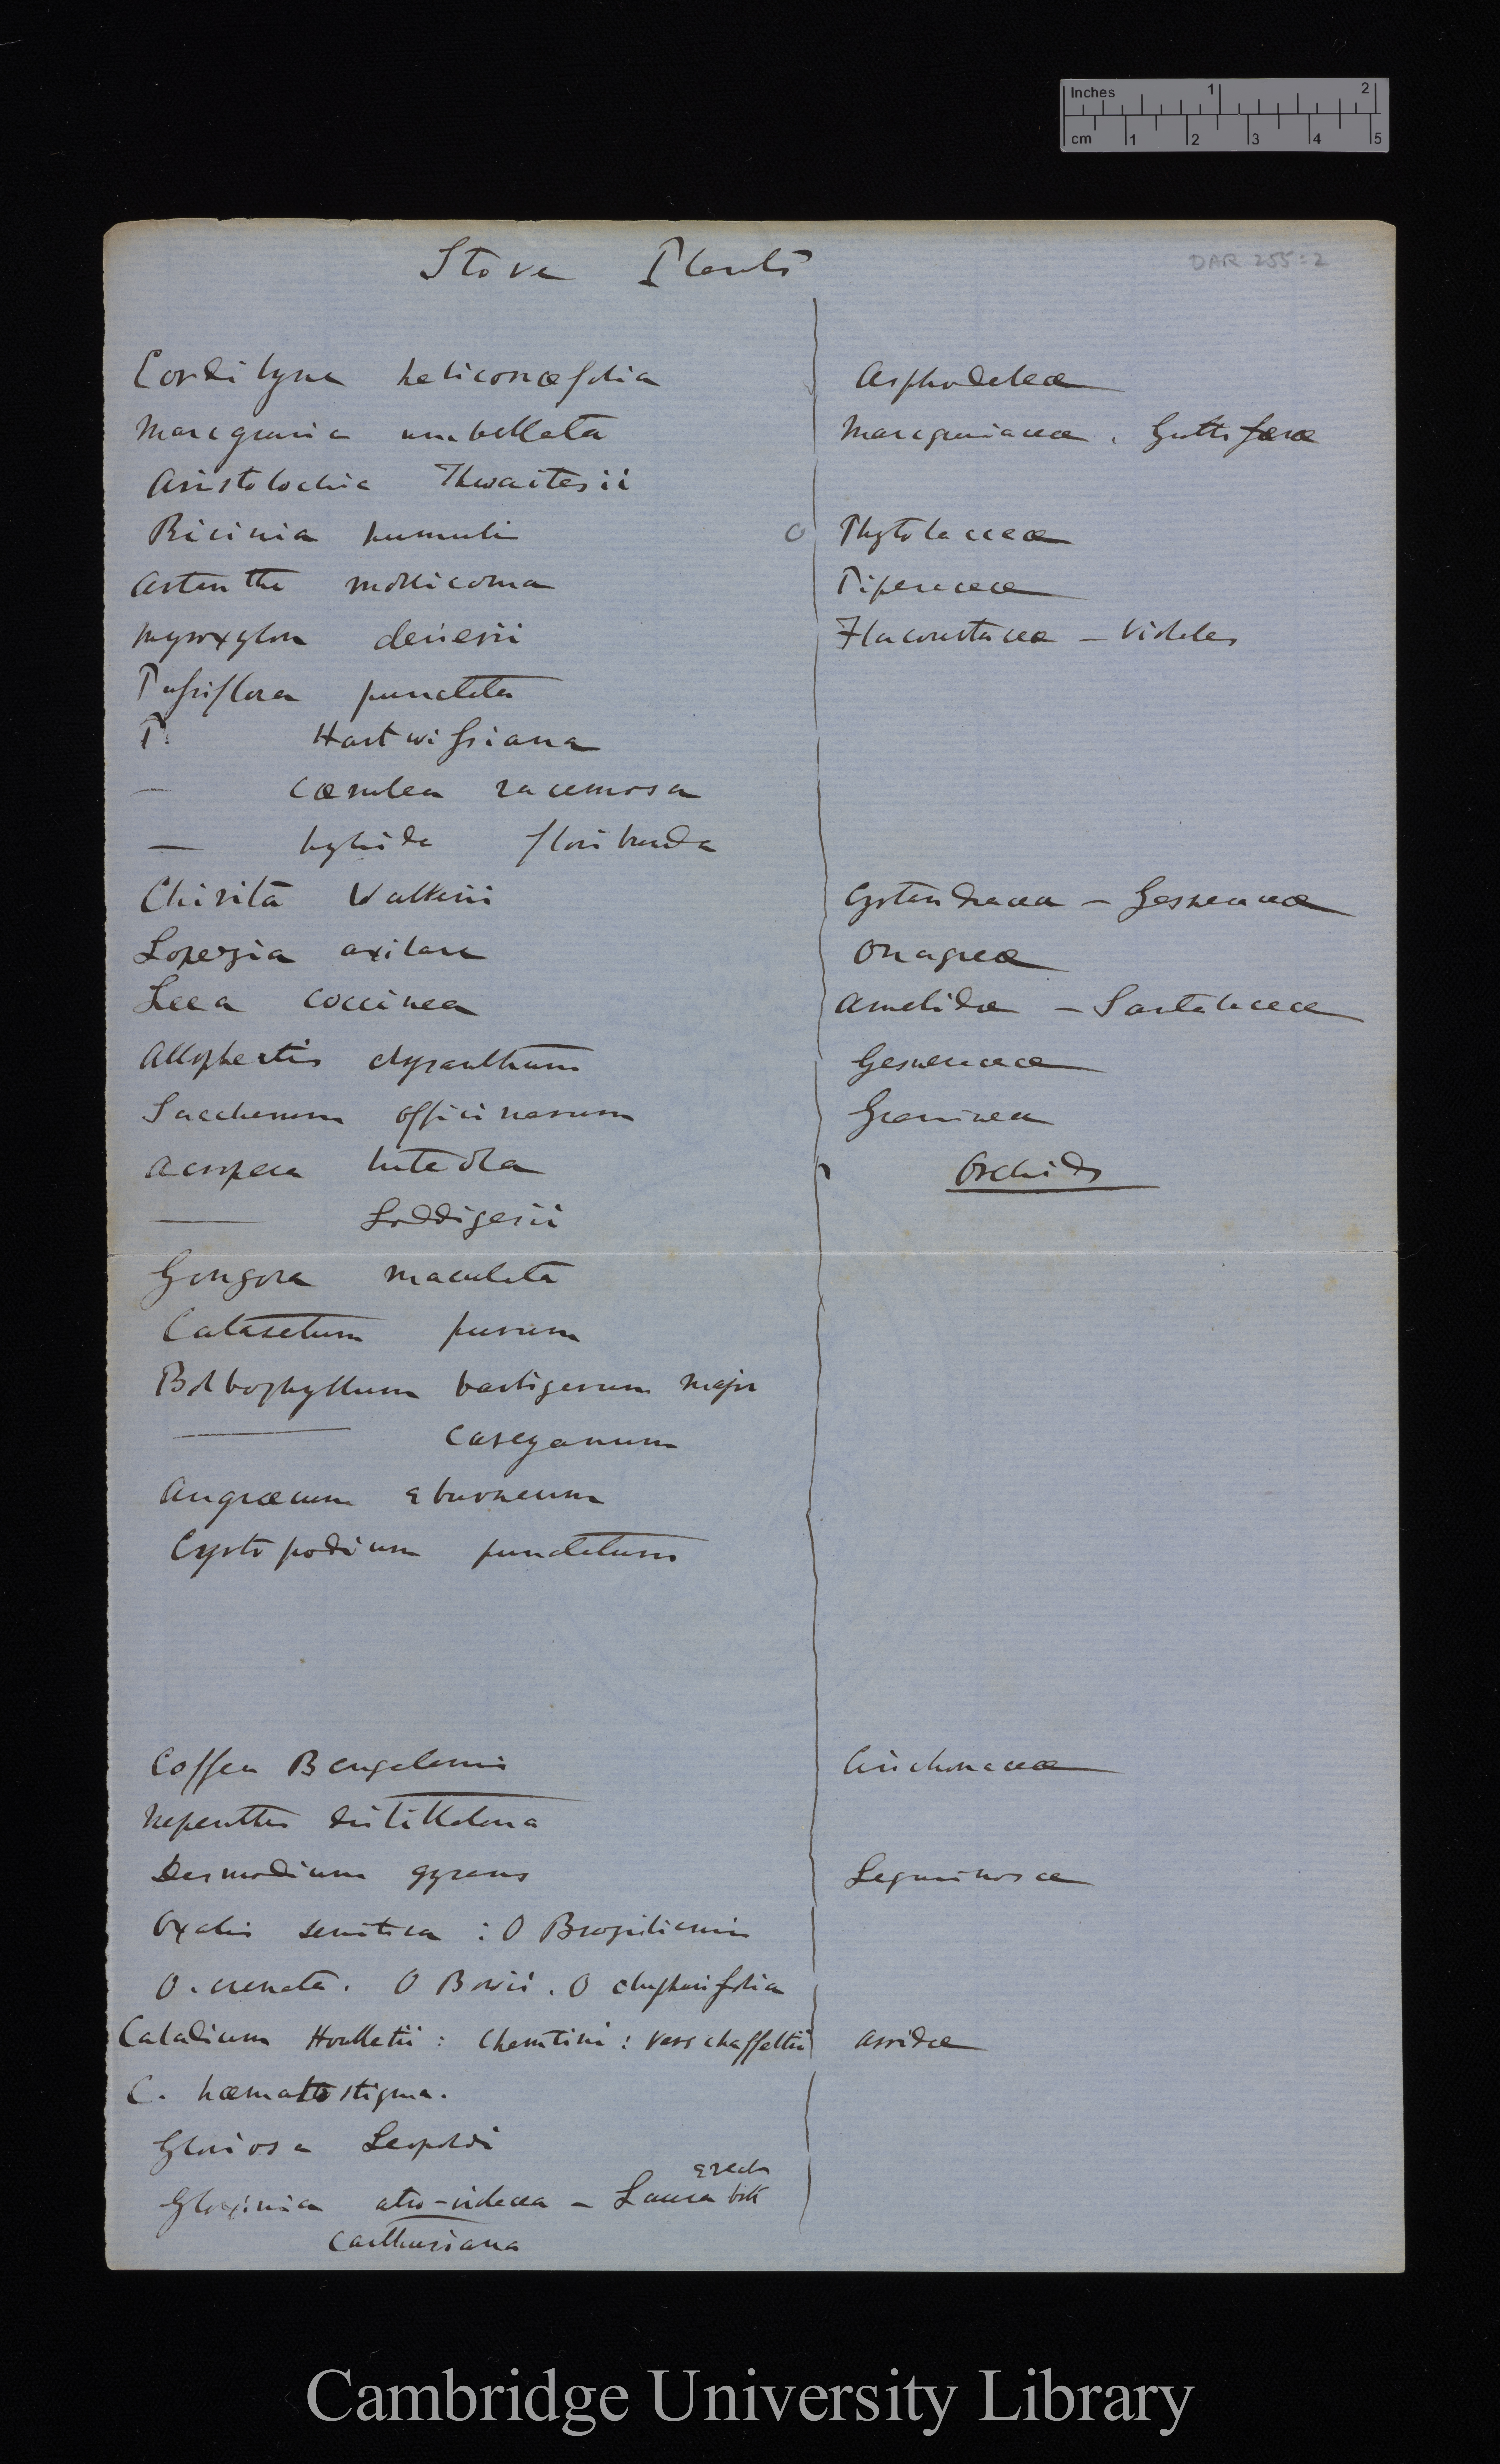 Inches 1 2
cm 1 2 3 4 5
DAR 255:2
Stove Plants
Cordilyne heliconæfolia Asphodeleæ
Marcgravia umbellata Marcgraviaceæ. Guttiferæ
Aristolochia Thwaitesii
Ricinia humuli Phytolacceæ
Artanthe mollicoma Piperaceæ
Myroxylon Flacourtaceæ – Violales
Passiflora punctata
P. Hartwissiana
— cærulea racemosa
— hybrida floribunda
Chirita Walkerii Cyrtandracea – Gesneraceæ
Lopezia axilare Onagreæ
Leea coccinea Amelidæ – Santalaceæ
Allophertis chrysanthum Gesneraceæ
Saccharum officinarum Graminea
Acropera luteola Orchids
— Loddigesii
Gongora maculata
Catasetum purum
Bolbophyllum barbigerum major
— Careyanum
Angræcum eburneum
Cyrtopodium punctatum
Coffea Bengalensis Cinchonaceæ
Nepenthes distillatoria
Desmodium gyrans Leguminosæ
Oxalis sensitiva : O Braziliensis
O. crenata. O Bowii. O
Caladium Houlletii : Chantini : Verschaffeltii Arridæ
C. hæmatostigma.
Gloriosa Leopoldi
erect
Gloxinia atro-violacea – Laura both
Carthusiana
Cambridge University Library